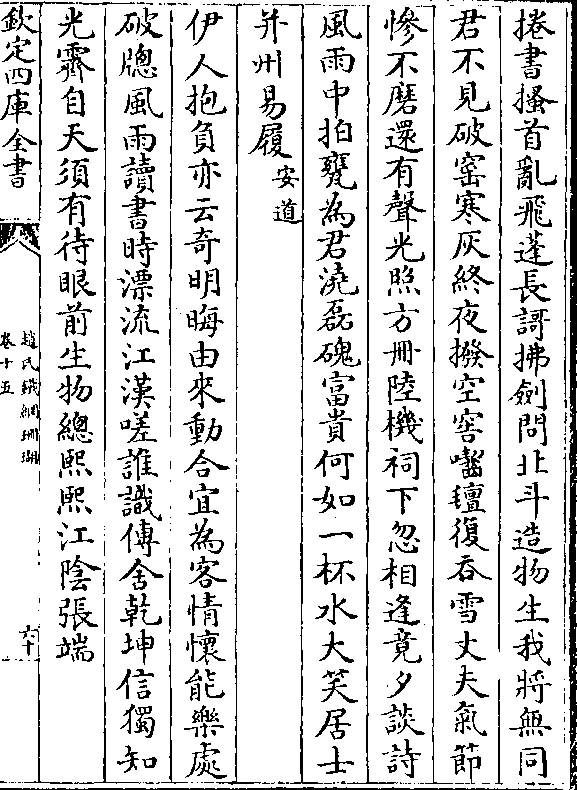 捲書搔首亂飛蓬長謌拂劍問北斗造物生我將無同
君不見破窑寒灰終夜撥空窖囓氊復吞雪丈夫氣節
慘不磨還有聲光照方冊陸機祠下忽相逢竟夕談詩
風雨中拍甕為君澆磊磈富貴何如一杯水大笑居士
幷州易履安道
伊人抱負亦云奇明晦由來動合宜為客情懷能樂處
破牕風雨讀書時漂流江漢嗟誰識傳舍乾坤信獨知
光霽自天須有待眼前生物總熙熙江陰張端
欽定四庫全書
趙氏鐵網珊瑚
卷十五
六十